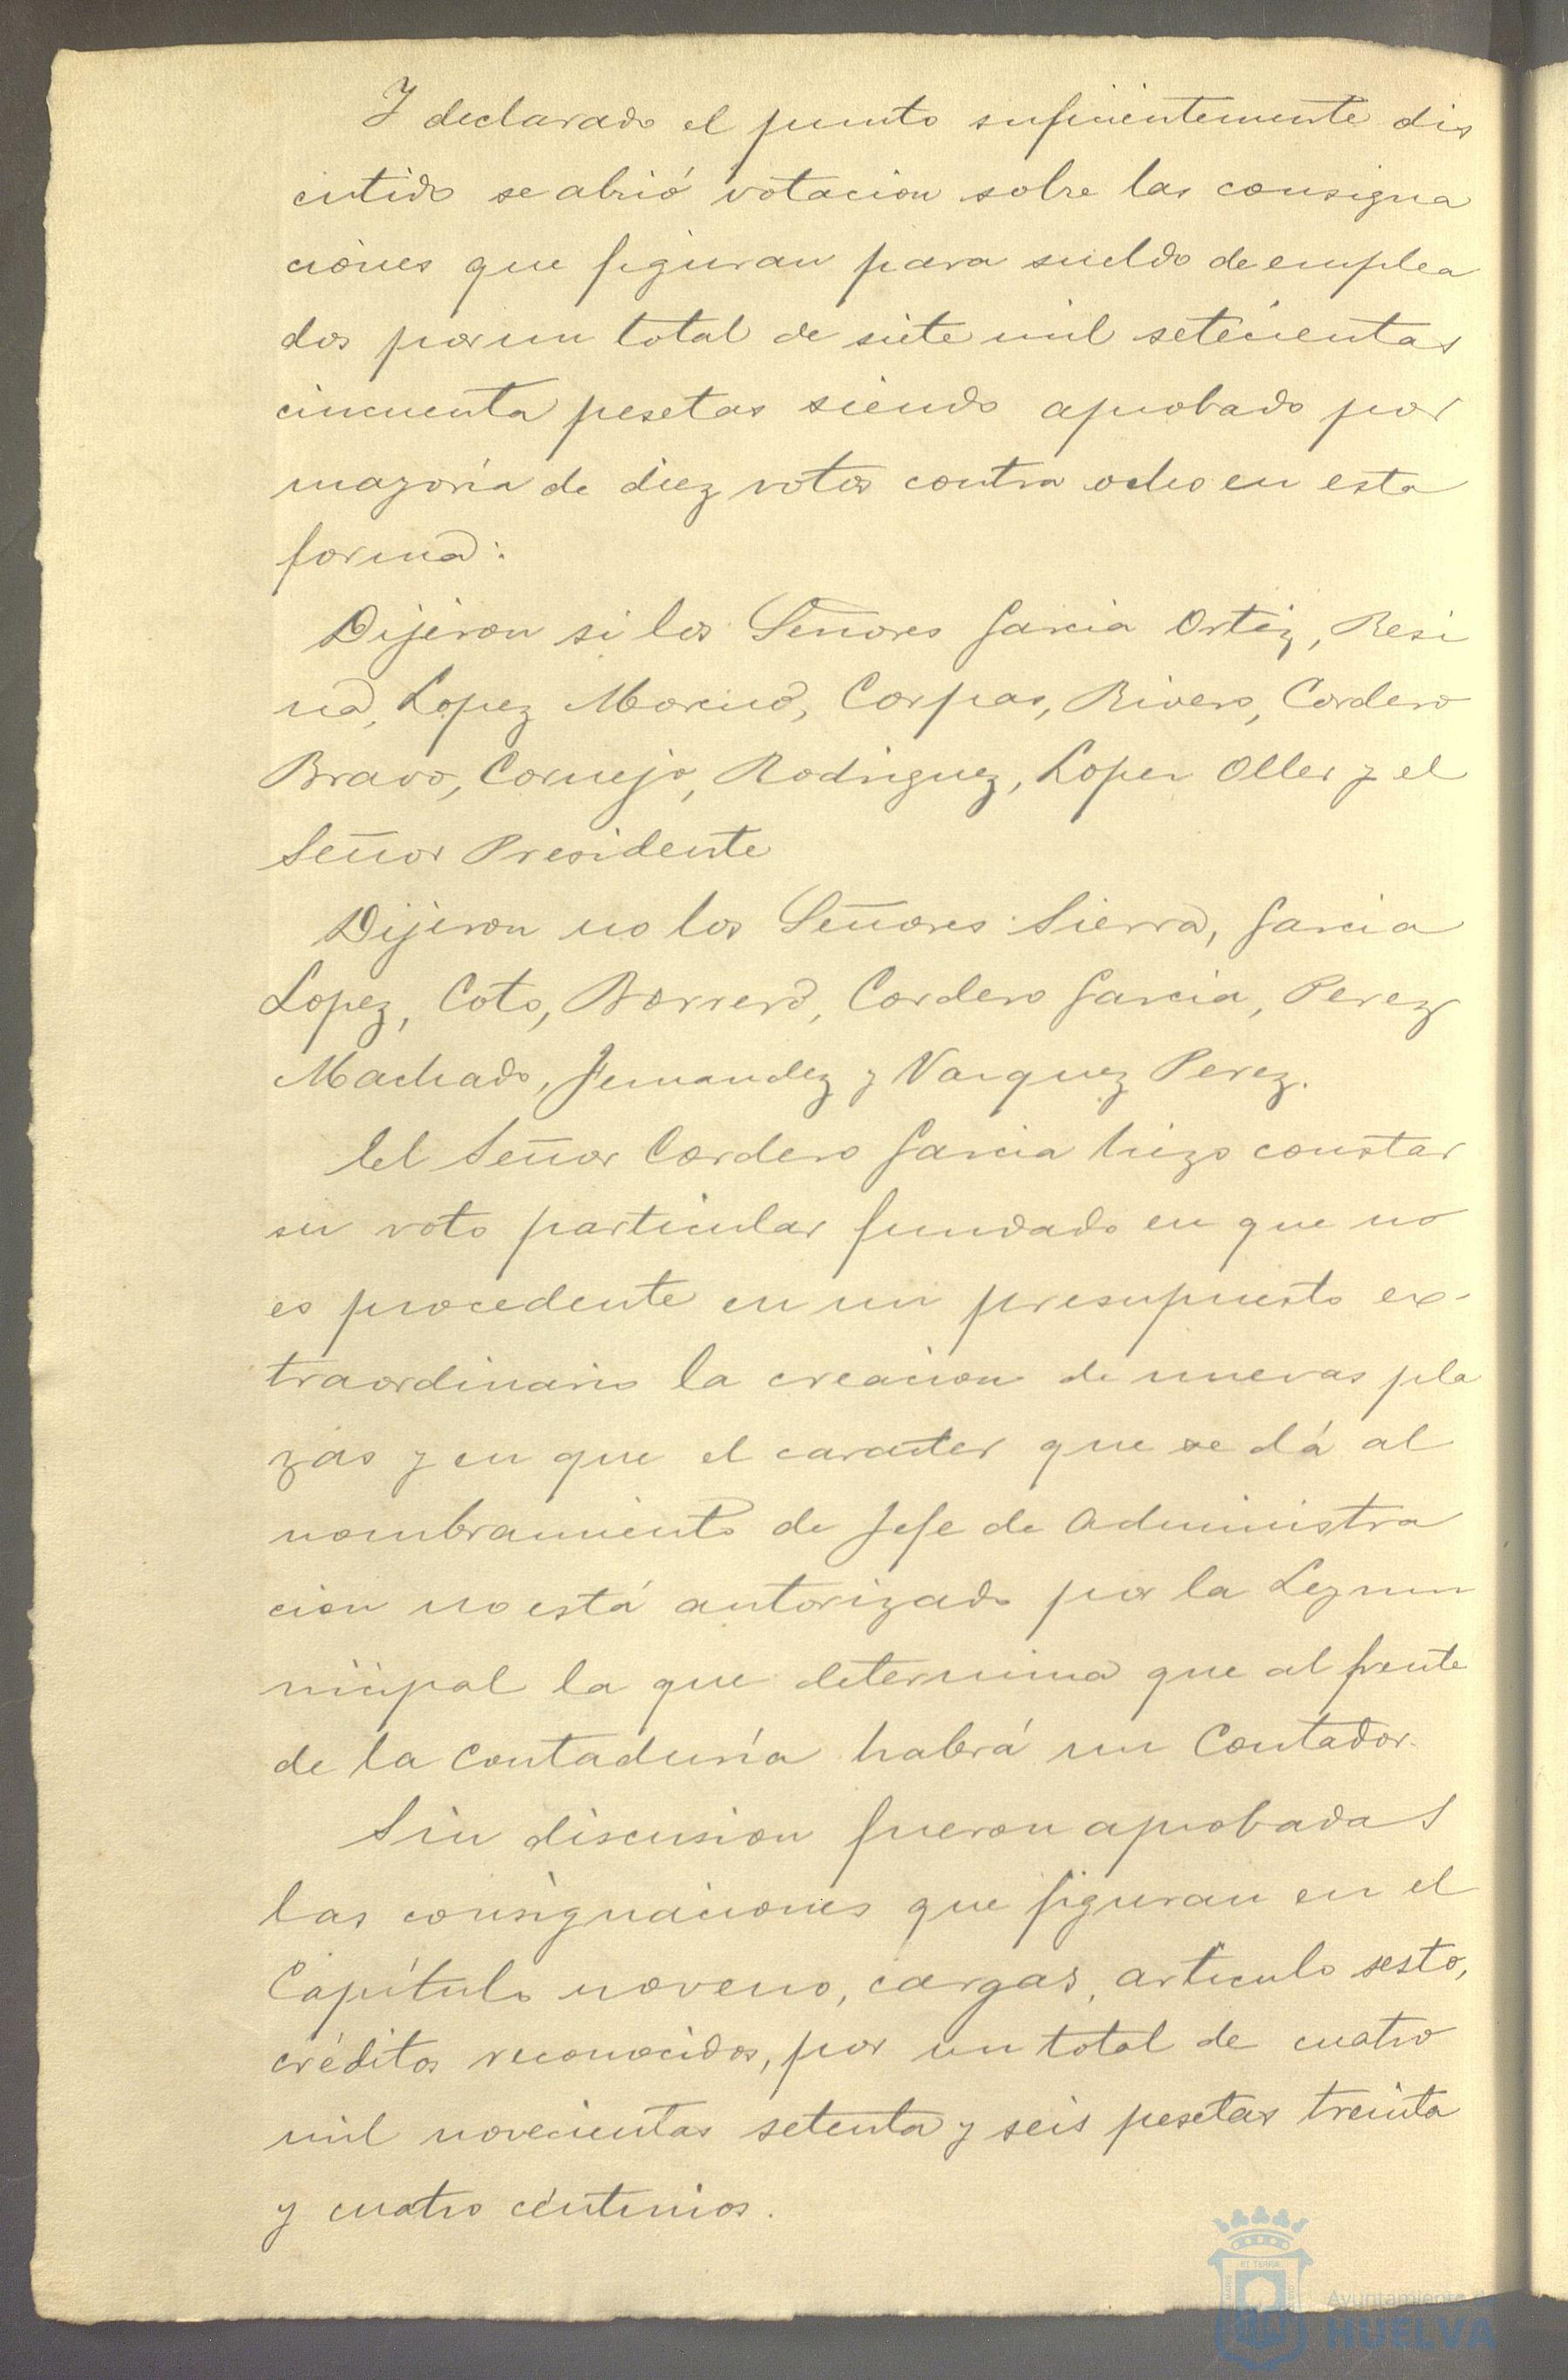 Y declarado el punto suficientemente dis
cutido se abrió votacion sobre las consigna
ciones que figuran para sueldo de emplea
dos por un total de siete mil setecientas
cincuenta pesetas siendo aprobado por
mayoría de diez votos contra ocho en esta
forma:
Dijeron si los Señores Garcia Ortiz, Resi
na, Lopez Moreno, Corpas, Rivero, Cordero
Bravo, Cornejo, Rodriguez, Lopez Oller y el
Señor Presidente
Dijeron no los Señores Sierra, Garcia
Lopez, Coto, Borrero, Cordero Garcia, Perez
Machado, Fernandez y Vazquez Perez.
El Señor Cordero Garcia hizo constar
su voto particular fundado en que no
es procedente en un presupuesto ex-
traordinario la creacion de nuevas pla
zas y en que el caracter que se dá al
nombramiento de Jefe de Administra
cion no está autorizado por la Ley mu
nicipal la que determina que al frente
de la Contaduría habrá un Contador.
Sin discusion fueron aprobadas
las consignaciones que figuran en el
Capítulo noveno, cargas, articulo sesto,
créditos reconocidos, por un total de cuatro
mil novecientas setenta y seis pesetas treinta
y cuatro céntimos.
Ayuntamiento de
HUELVA